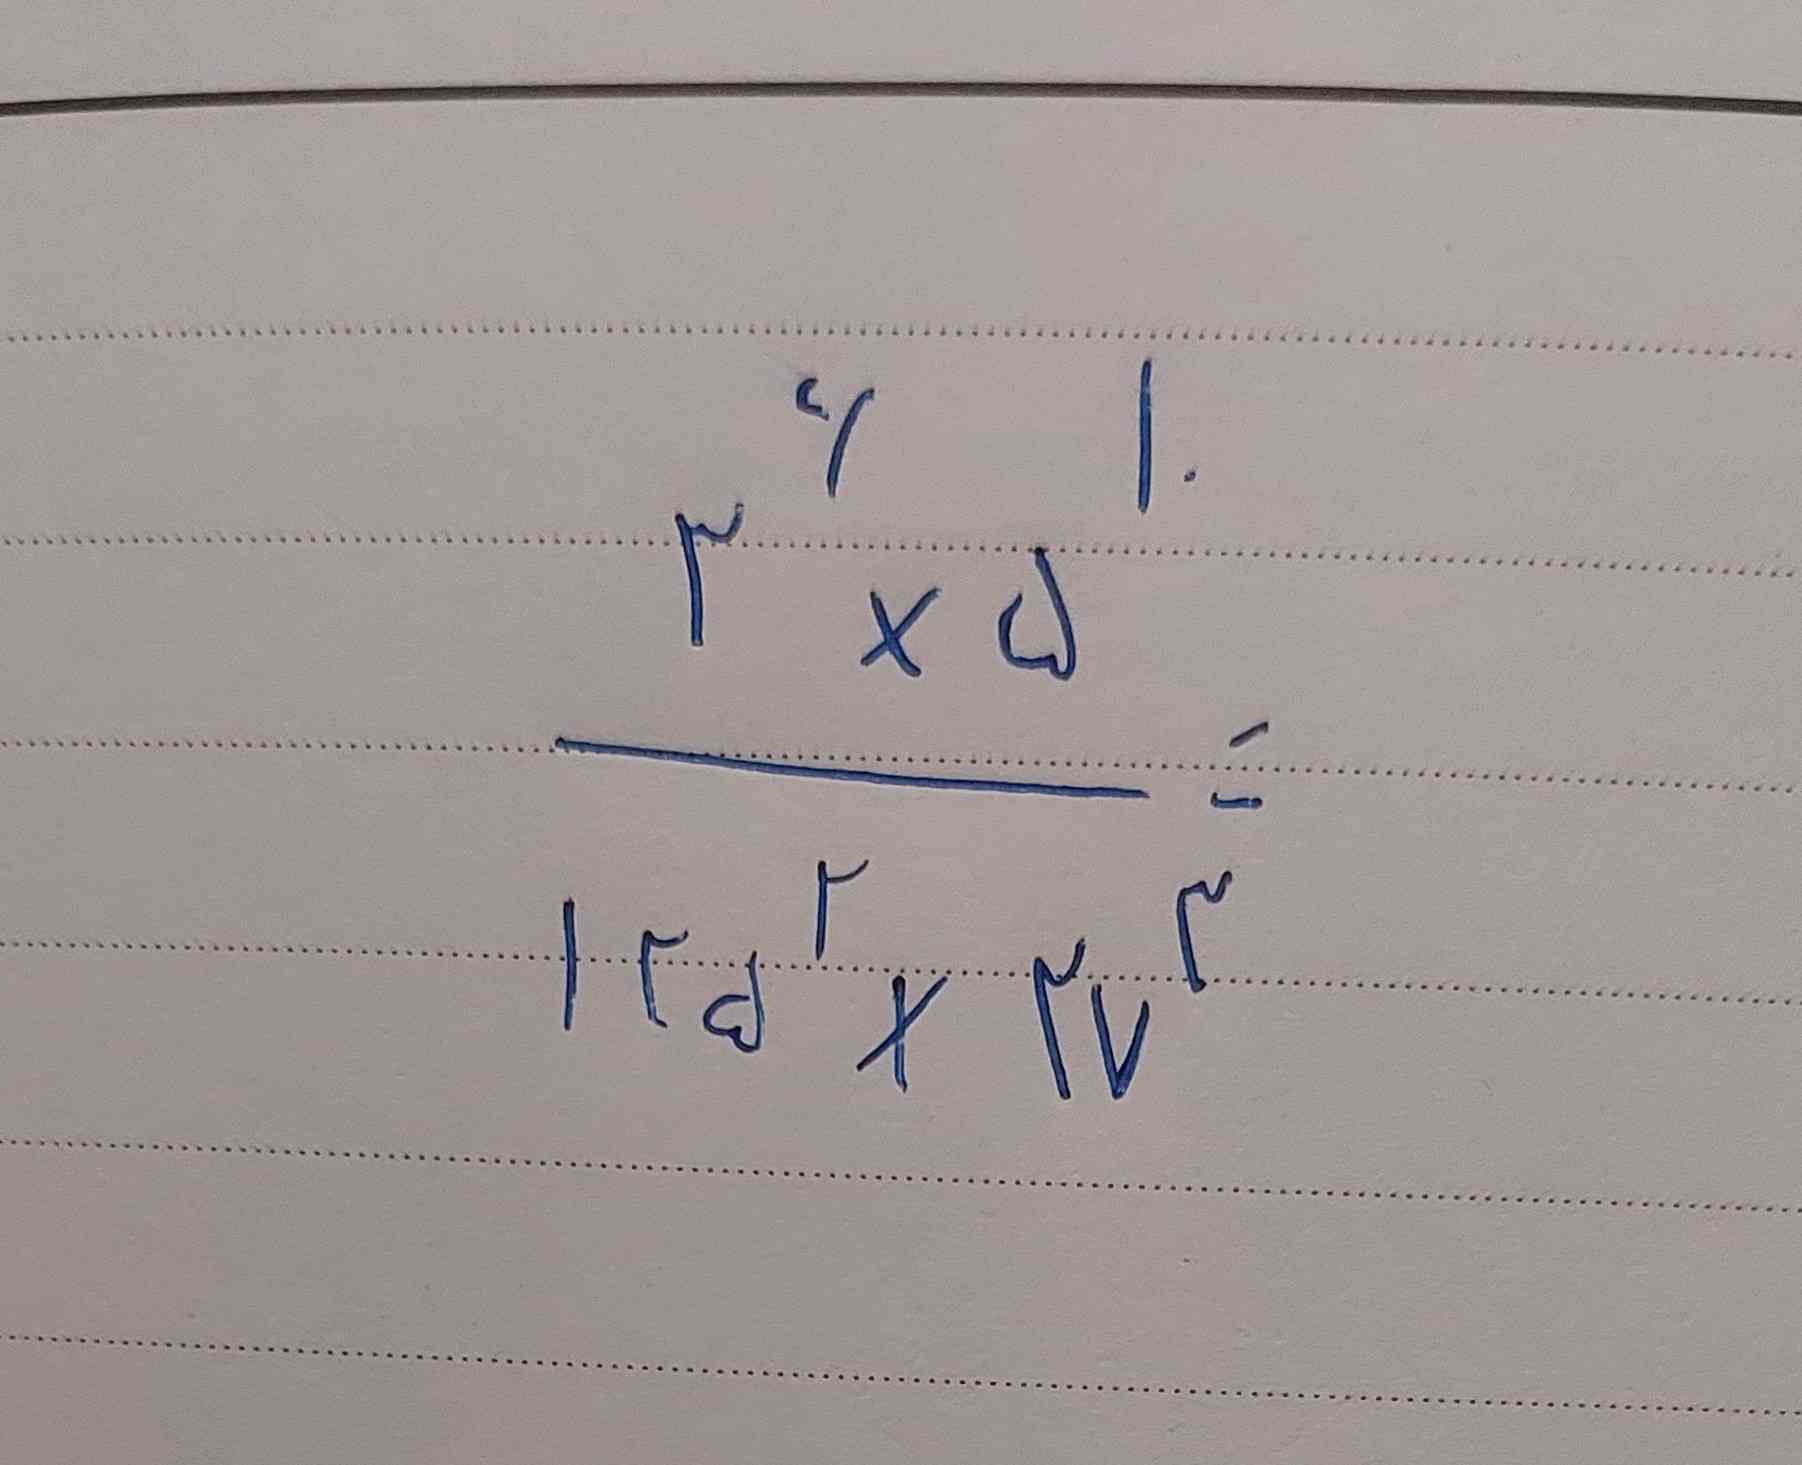 ۳^۶ × ۵^۱۰
—— =
۱۲۵^۲ × ۲۷^۳